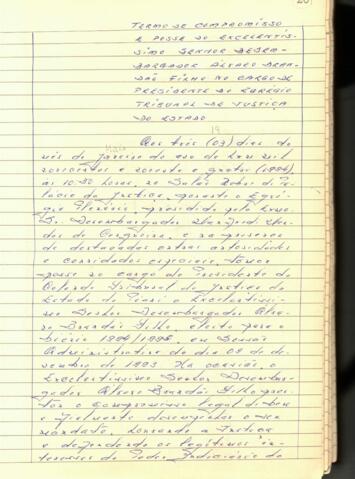 TERMO DE COMPROMISSO
E POSSE DO EXCELENTÍS-
SIMO SENHOR DESEM-
BARGADOR ALVARO BRAN-
DÃO FILHO NO CARGO DE
PRESIDENTE DO EGRÉGIO
TRIBUNAL DE JUSTIÇA
DO ESTADO
Aos três (03) dias do
mês de Janeiro do ano de hum mil
novecentos e noventa e quatro (1994)
às 10:30 horas, no Salão
da Justiça, presente o Egré-
gio presidido pelo Exmo
Sr. Desembargador
de Cerqueira, e na presença
de destacadas outras autoridades
e convidados especiais, tomou
posse no cargo de Presidente do
Colendo Tribunal de Justiça do
Estado do Piauí o Excelentíssi-
mo Senhor Desembargador Alva-
ro Brandão Filho, eleito para o
biênio 1994/1995, em Sessão
Administrativa do dia 09 de de-
zembro de 1993. Na ocasião, o
Excelentíssimo Senhor Desembar-
gador Alvaro Brandão Filho pres-
tou o compromisso legal de bem
e fielmente desempenhar o seu
mandato, honrando a Justiça
e defendendo os legítimos in-
teresses do Poder Judiciário do